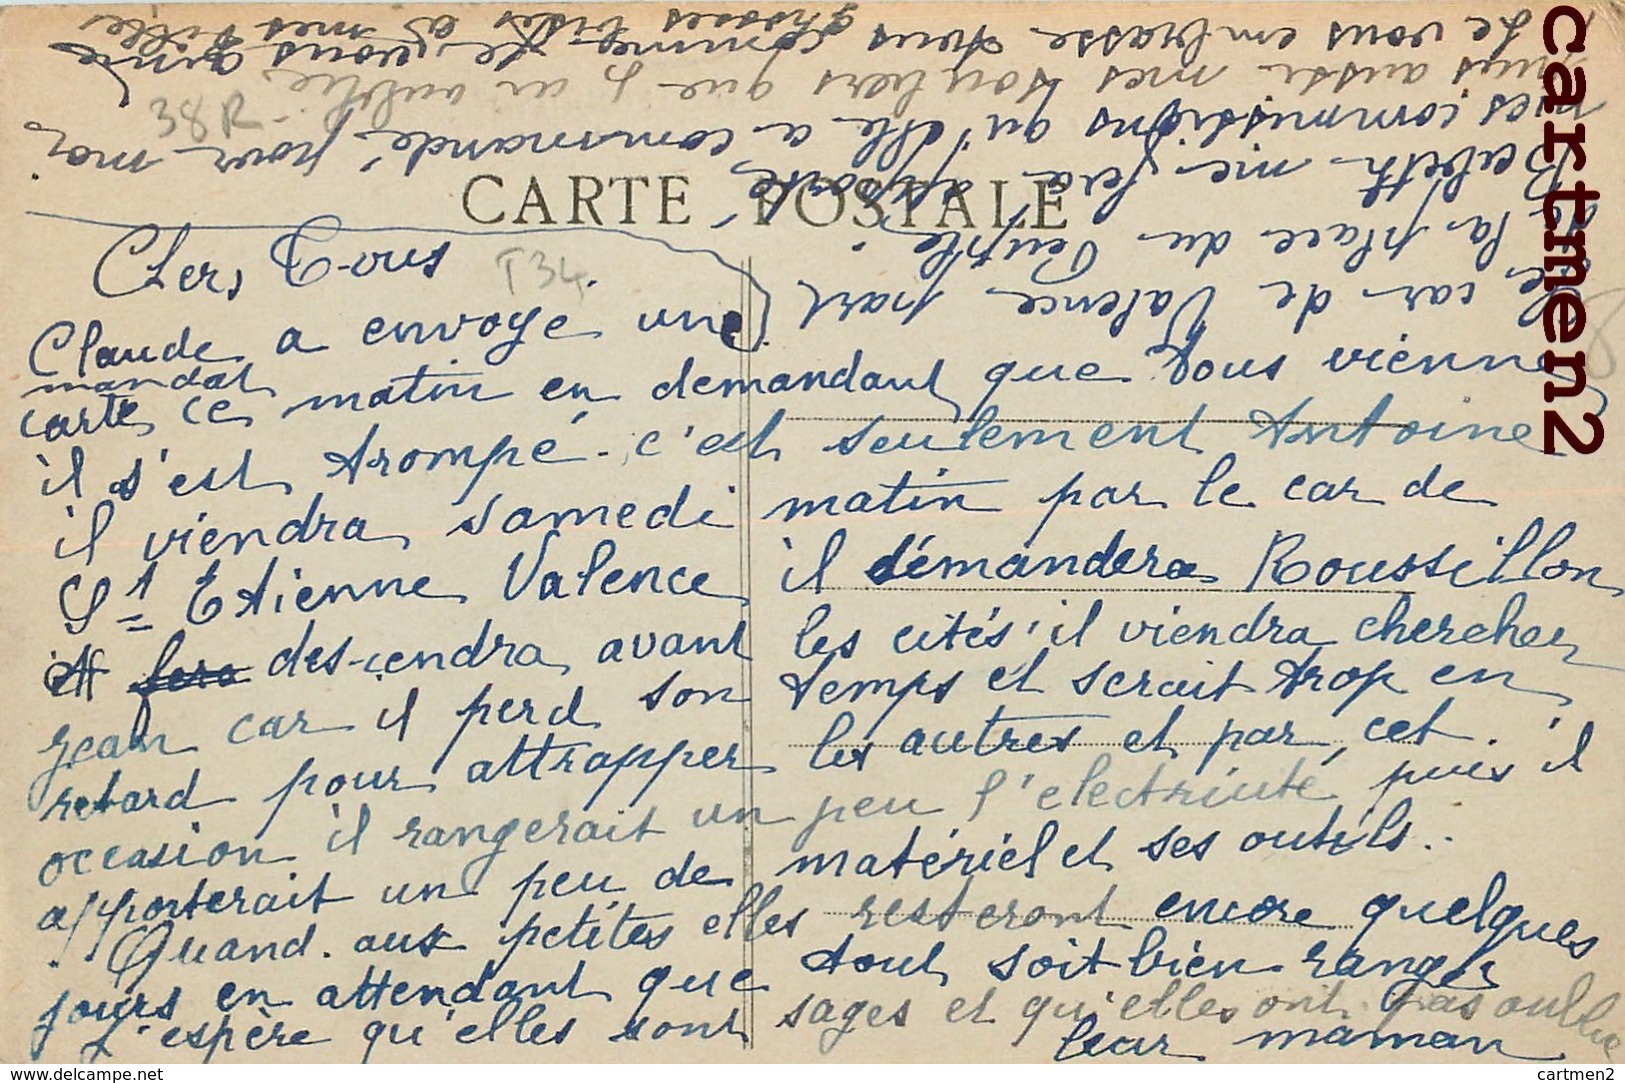 CARTE POSTALE
38R-
T34
Chers Tous
Claude a envoyé une
mandat
carte ce matin en demandant que tous viennent
il s'est trompé. c'est seulement Antoine
il viendra samedi matin par le car de
St Etienne Valence il démandera Roussillon
les cités, il viendra chercher
descendra avant
Jean car il perd son temps et serait trop en
retard pour attrapper les autres et par cet
occasion il rangerait un peu l'electricité puis il
apporterait un peu de matériel et ses outils..
Quand. aux petites elles resteront encore quelques
jours en attendant que tout soit bien rangés
J'espère qu'elles sont sages et qu'elles ont pas oublié
leur maman
le car de Valence part
de la place du Peuple
Babeth me fera apporté
mes commissions qu'elle a commandé pour moi
mais aussi mes souliers que j'ai oublié.
Je vous embrasse tous comme je vous aime
grosses bises à mes filles
cartmen2
www.delcampe.net
cartmen2